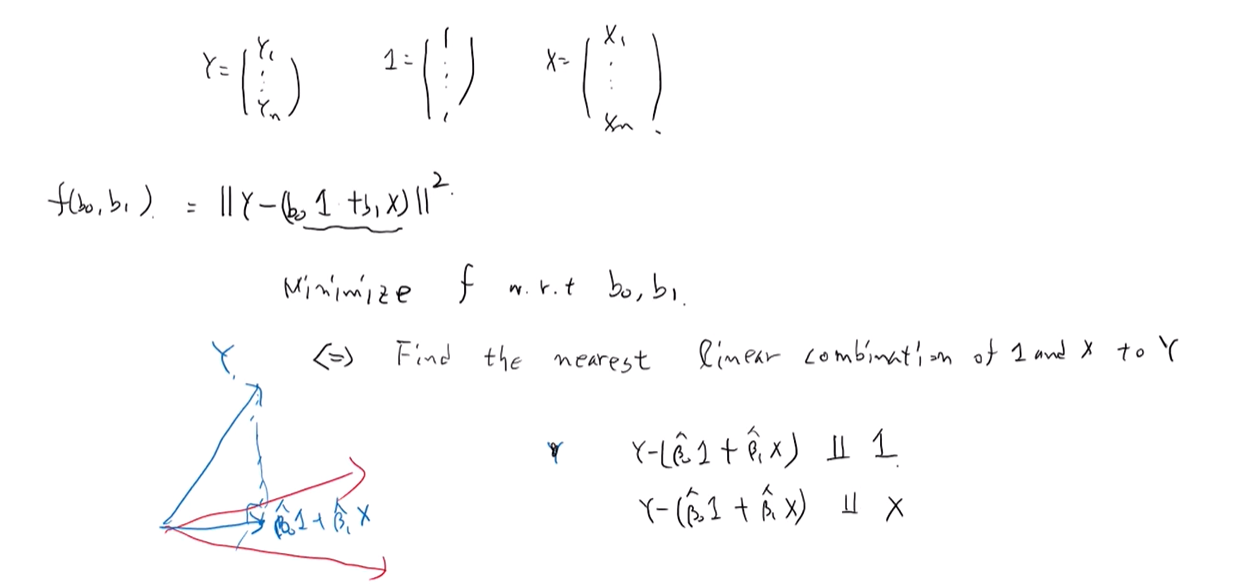 Y = (Y₁ ⋮ Yₙ) 1 = (1 ⋮ 1) X = (X₁ ⋮ Xₙ)
f(b₀, b₁) = ‖Y − (b₀ 1 + b₁ X)‖².
Minimize f w.r.t b₀, b₁.
Y
⟺ Find the nearest linear combination of 1 and X to Y
Y − (β̂₀ 1 + β̂₁ X) ⫫ 1
Y − (β̂₀ 1 + β̂₁ X) ⫫ X
β̂₀ 1 + β̂₁ X